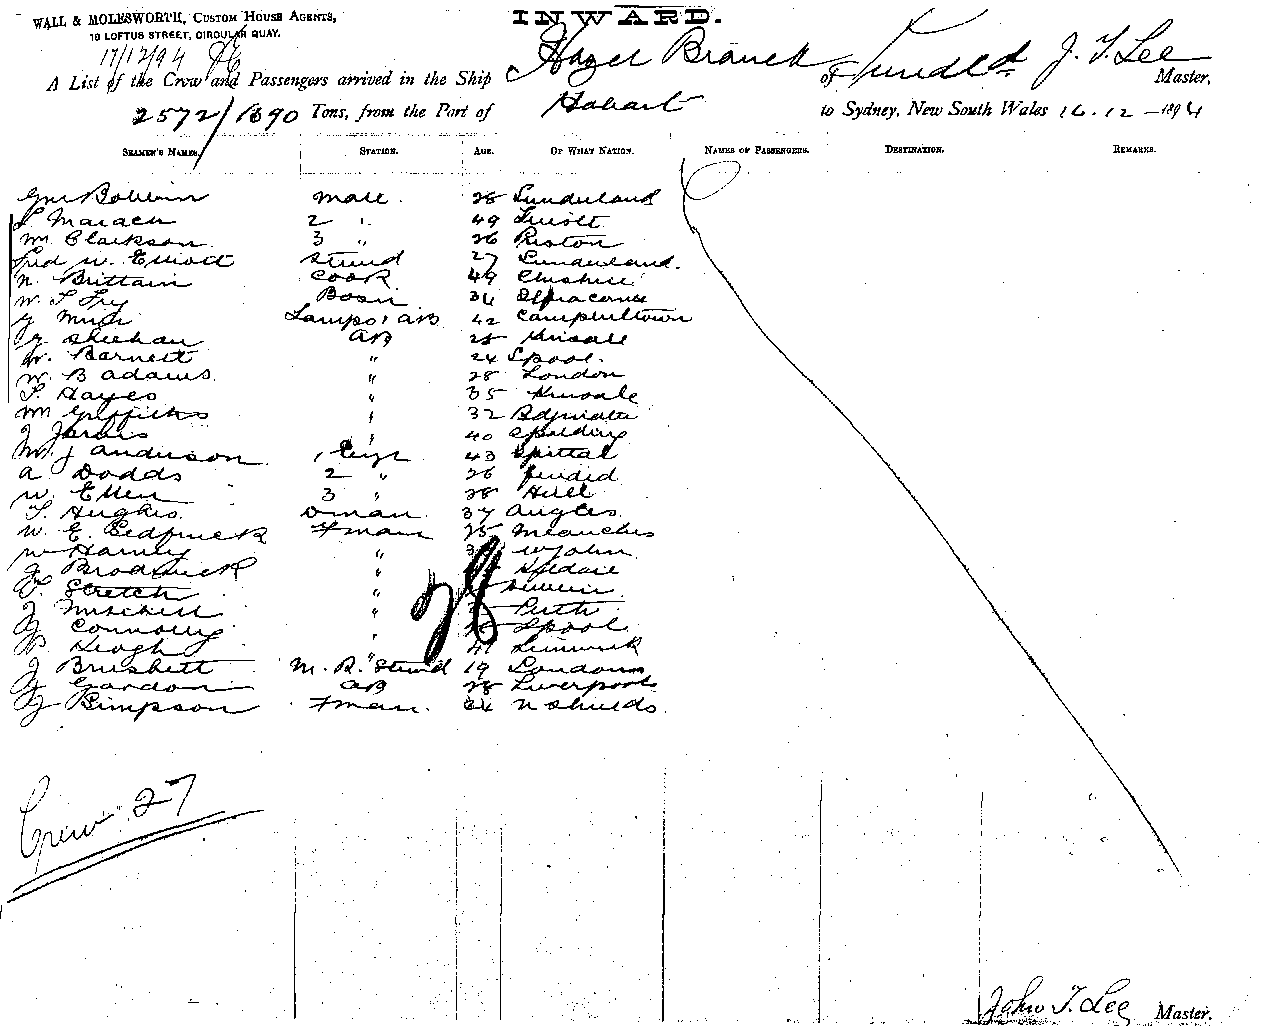 WALL & MOLESWORTH, CUSTOM HOUSE AGENTS,
19 LOFTUS STREET, CIRCULAR QUAY.
INWARD.
17/12/94
A List of the Crew and Passengers arrived in the Ship Hazel Branch of Sunderld J. T. Lee Master,
2572/1690 Tons, from the Port of Hobart to Sydney, New South Wales 16.12-1894
SEAMEN'S NAMES. STATION. AGE. OF WHAT NATION. NAMES OF PASSENGERS. DESTINATION. REMARKS.
mate 28 Sunderland
2 " 49
W. Clarkson 3 " 26 Preston
Fred W. Elliott Stwd 27 Sunderland.
N. Brittain Cook 49 Cheshire
W. T Fry Bosn 34 Ilfracombe
Lamps & AB 42 Campbeltown
Sheehan AB 25 Kinsale
W. Barnett " 24 Lpool.
W. B Adams " 28 London
T. Hayes " 35 Kinsale
M Griffiths " 32
J Jarvis " 40 Spalding
W. J Anderson 1 Engr 43 Spittal
A Dodds 2 " 26
W. Ellen 3 " 28 Hull
T. Hughes Dman 37 Angles
W. E. Fman 25
W Harvey "
J Brodrick " Kildare
Stretch "
J Mitchell " Perth
J Connolly " Lpool
P. Keogh " 41 Limerick
J Brushett M. R. Stwd 19 London
J Gordon AB 28 Liverpool
J Simpson Fman. 24 N Shields
28
Crew 27
John T. Lee Master.